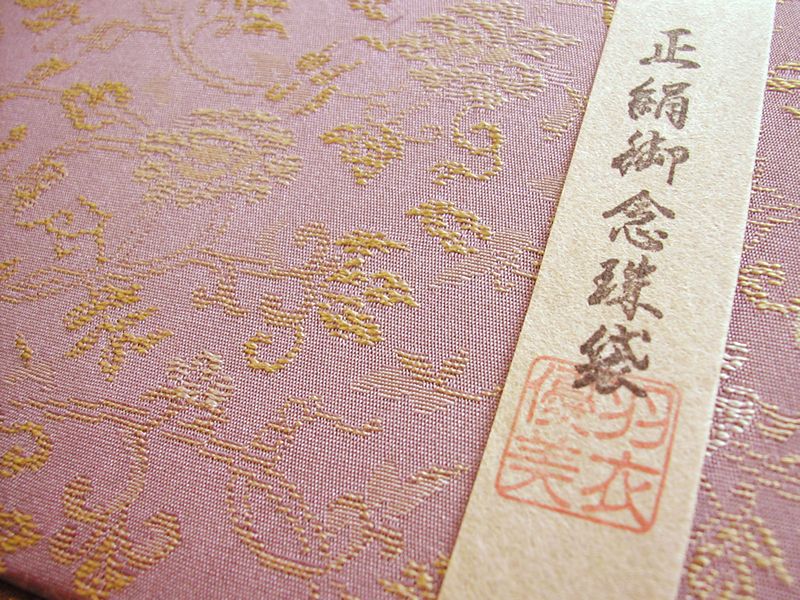 正絹御念珠袋
羽衣
優美